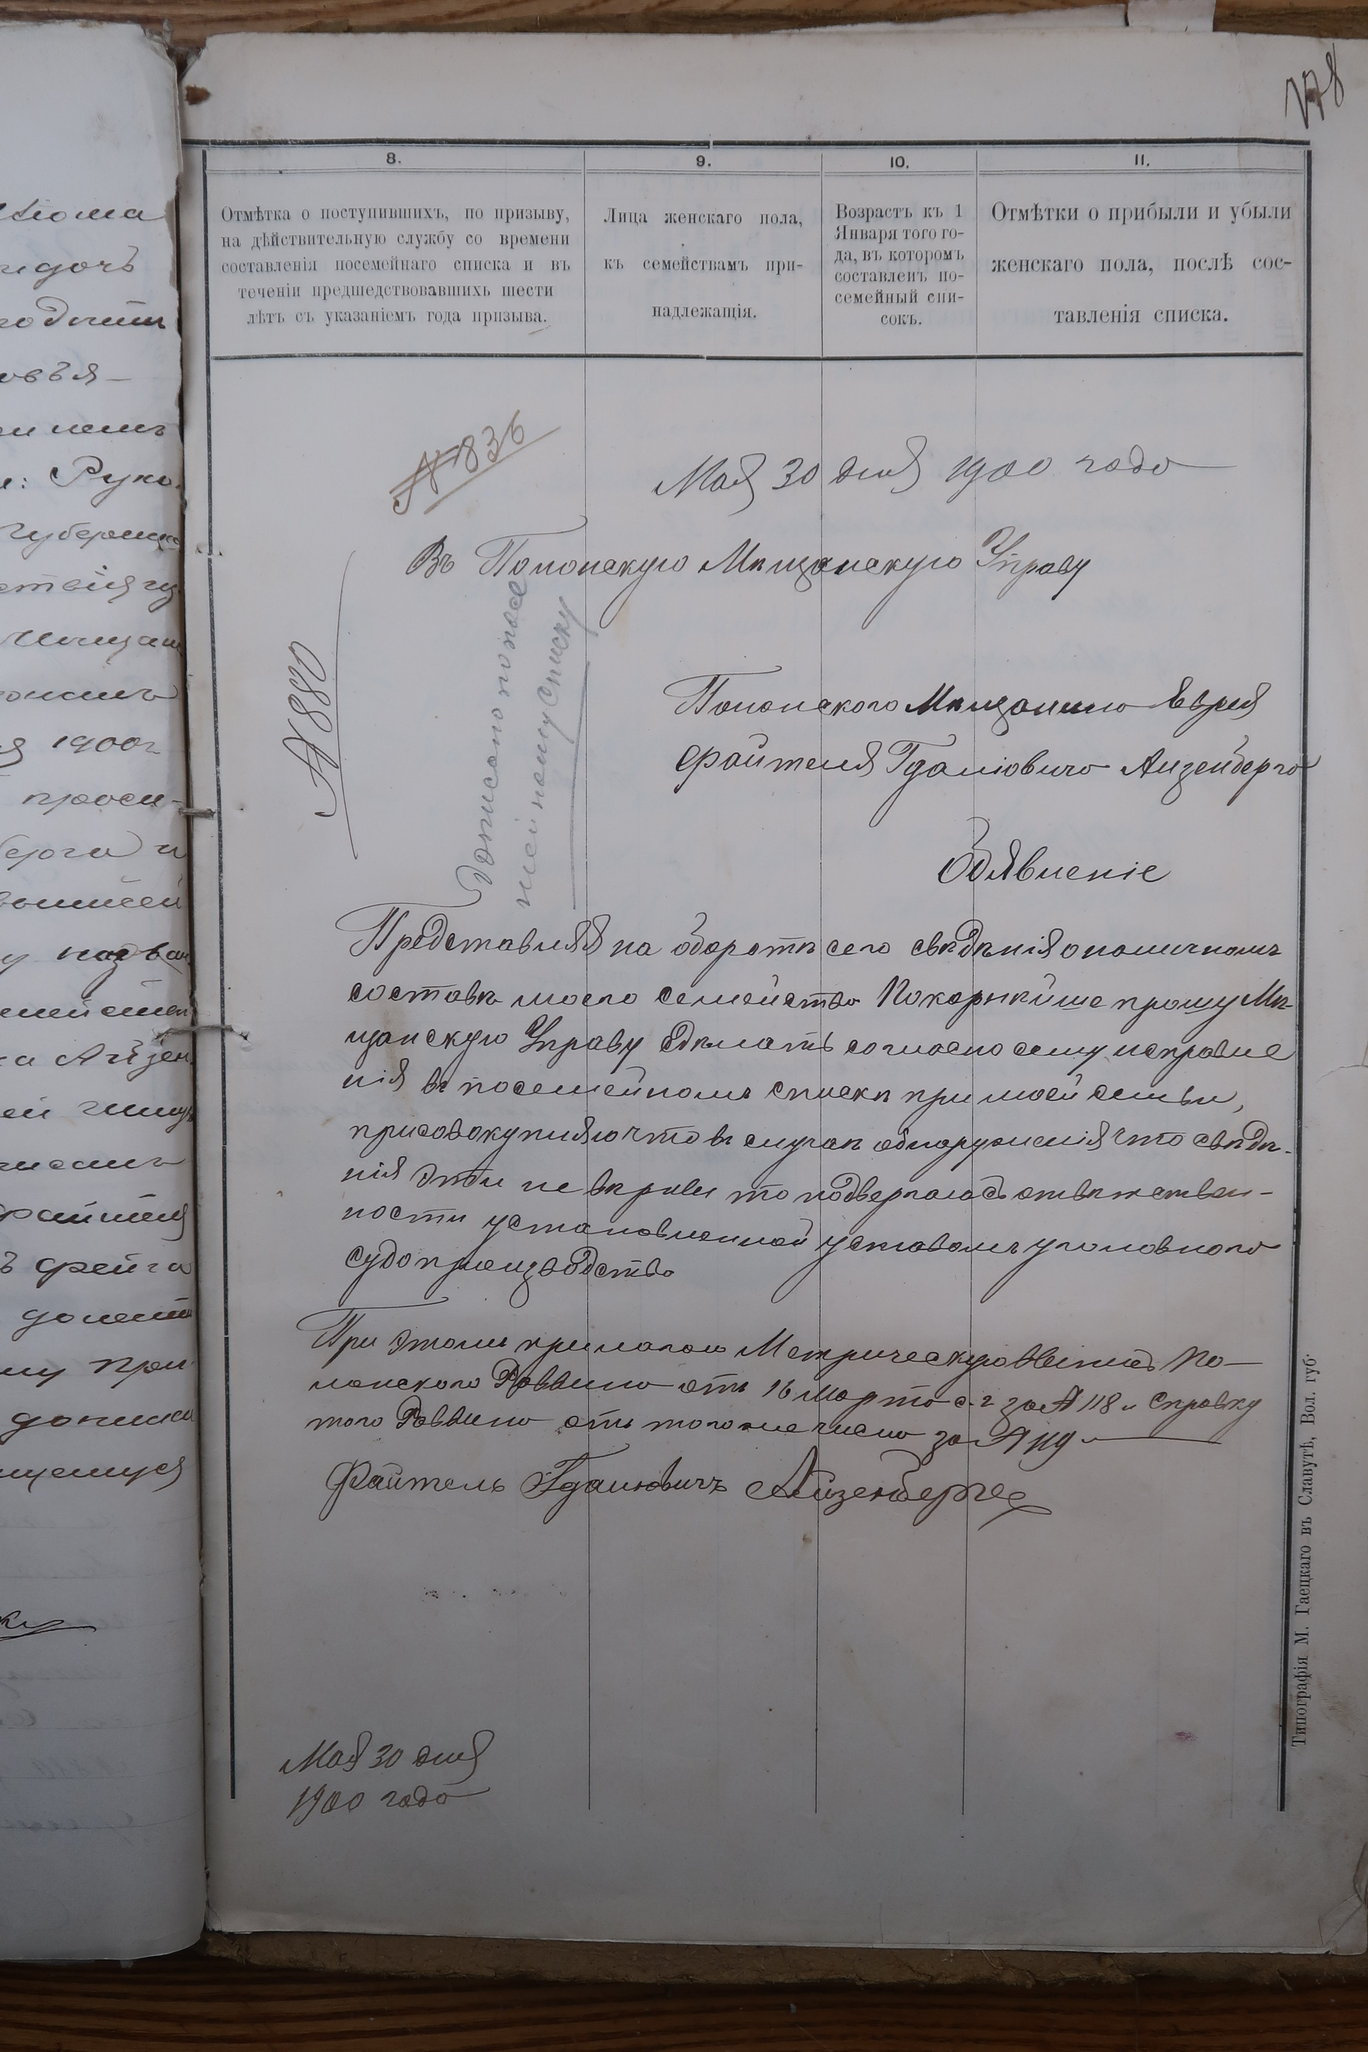 178
8.
9.
10.
11.
Отмѣтка о поступившихъ, по призыву,
на дѣйствительную службу со времени
составленія посемейнаго списка и въ
теченіи предшедствовавшихъ шести
лѣтъ съ указаніемъ года призыва.
Лица женскаго пола,
къ семействамъ при-
надлежащія.
Возрастъ къ 1
Января того го-
да, въ которомъ
составленъ по-
семейный спи-
сокъ.
Отмѣтки о прибыли и убыли
женскаго пола, послѣ сос-
тавленія списка.
№ 836
Мая 30 дня 1900 года
Въ Полонскую Мѣщанскую Управу
№ 880
Дописано по посе
мейному списку
Полонскаго Мѣщанина Еврея
Файтеля Гдаліовича Айзенберга
Обявленіе
Представляя на оборотѣ сего свѣдѣнія о наличномъ
составѣ моего семейства Покорнѣйше прошу Мѣ-
щанскую Управу сдѣлать согласно сему исправле
нія въ посемейномъ спискѣ при моей семьи,
присовокупляю что въ случаѣ обнаруженія что свѣдѣ-
нія эти не вѣрны то подвергаюсь отвѣтствен-
ности установленной уставомъ уголовнаго
судопроизводства
При этомъ прилагаю Метрическую выпись По-
лонскаго Раввина отъ 16 Марта с.г за № 118 и справку
того Раввина отъ того же числа за № 119
Файтель Гдаліовичъ Айзенбергъ
Мая 30 дня
1900 года
Типографія М. Гаецкаго въ Славутѣ, Вол. губ.